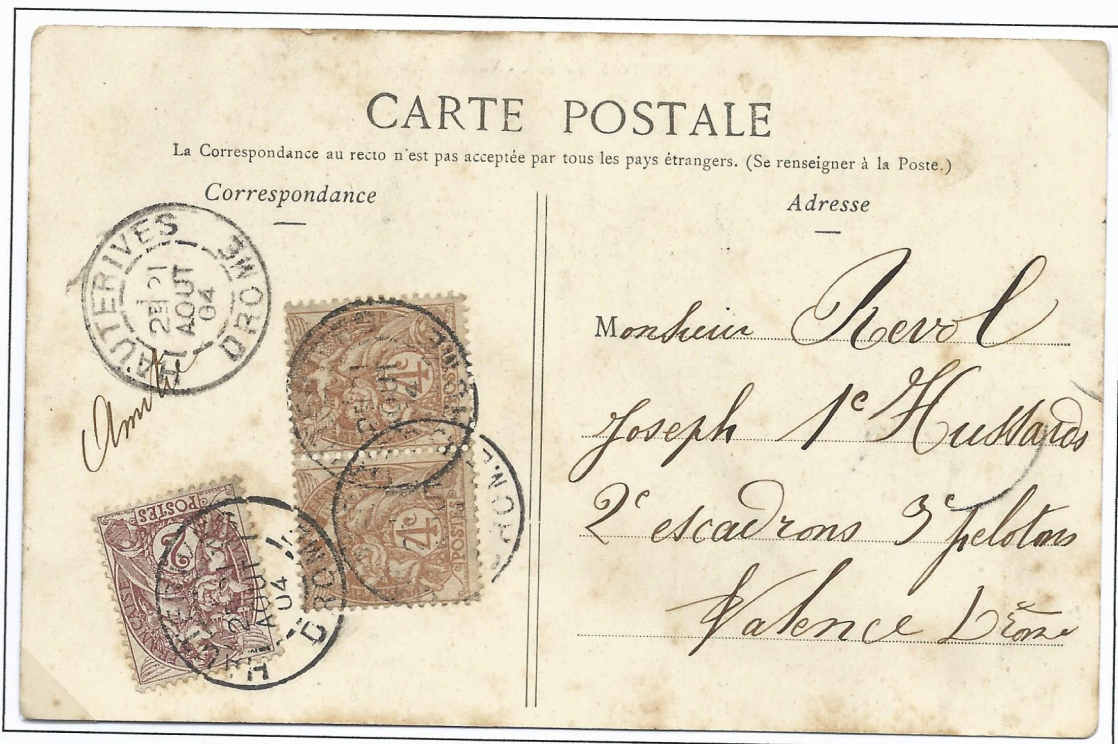 CARTE POSTALE
La Correspondance au recto n'est pas acceptée par tous les pays étrangers. (Se renseigner à la Poste.)
Correspondance
Adresse
HAUTERIVES DROME
2E 21
AOUT
04
Amitié
4
4
POSTES
POSTES
2
AOUT
04
DROME
Monsieur Revol
Joseph 1e Hussards
2e escadrons 3e pelotons
Valence Drôme